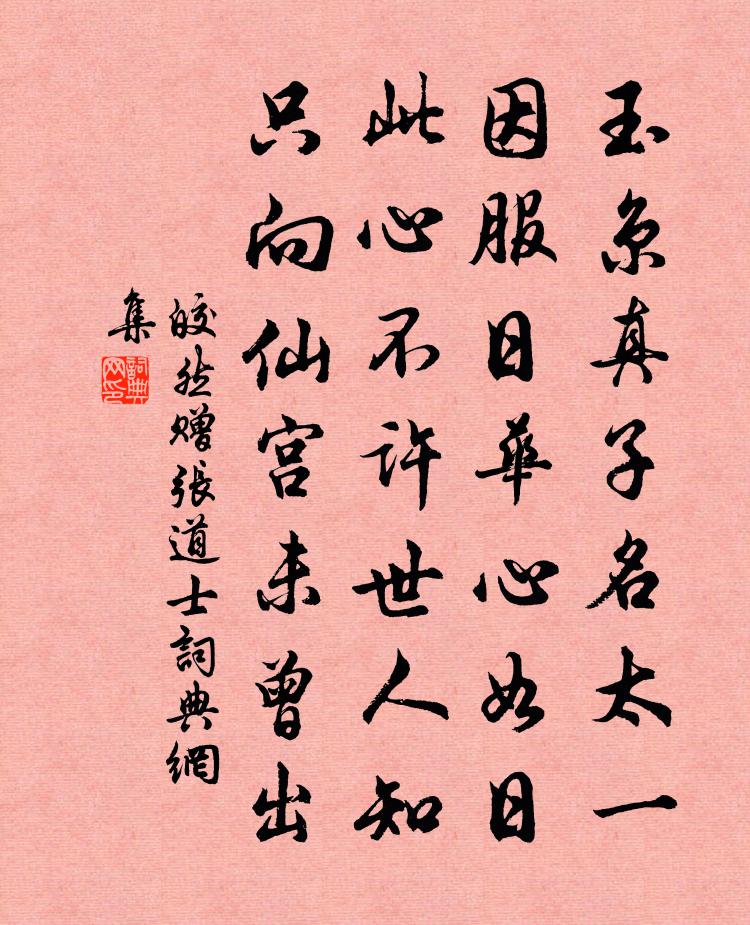 玉京真子名太一
因服日華心如日
此心不許世人知
只向仙宫未曾出
皎然贈張道士詞典網
集
詞典网印